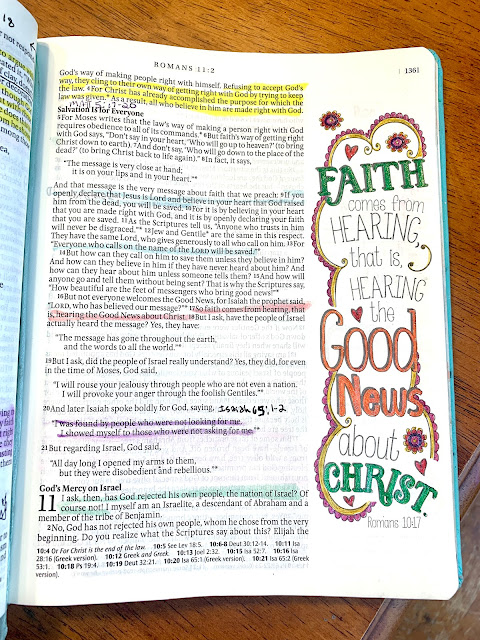 18
ROMANS 11:2
1361
God's way of making people right with himself. Refusing to accept God's
way, they cling to their own way of getting right with God by trying to keep
the law. 4For Christ has already accomplished the purpose for which the
law was given.* As a result, all who believe in him are made right with God.
Matt 5:17-20
Salvation Is for Everyone
5For Moses writes that the law's way of making a person right with God
requires obedience to all of its commands.* 6But faith's way of getting right
with God says, "Don't say in your heart, 'Who will go up to heaven?' (to bring
Christ down to earth). 7And don't say, 'Who will go down to the place of the
dead?' (to bring Christ back to life again)." 8In fact, it says,
"The message is very close at hand;
it is on your lips and in your heart."*
And that message is the very message about faith that we preach: 9If you
openly declare that Jesus is Lord and believe in your heart that God raised
him from the dead, you will be saved. 10For it is by believing in your heart
that you are made right with God, and it is by openly declaring your faith
that you are saved. 11As the Scriptures tell us, "Anyone who trusts in him
will never be disgraced."* 12Jew and Gentile* are the same in this respect.
They have the same Lord, who gives generously to all who call on him. 13For
"Everyone who calls on the name of the LORD will be saved."*
14But how can they call on him to save them unless they believe in him?
And how can they believe in him if they have never heard about him? And
how can they hear about him unless someone tells them? 15And how will
anyone go and tell them without being sent? That is why the Scriptures say,
"How beautiful are the feet of messengers who bring good news!"*
16But not everyone welcomes the Good News, for Isaiah the prophet said,
"LORD, who has believed our message?"* 17So faith comes from hearing, that
is, hearing the Good News about Christ. 18But I ask, have the people of Israel
actually heard the message? Yes, they have:
"The message has gone throughout the earth,
and the words to all the world."*
19But I ask, did the people of Israel really understand? Yes, they did, for even
in the time of Moses, God said,
"I will rouse your jealousy through people who are not even a nation.
I will provoke your anger through the foolish Gentiles."*
20And later Isaiah spoke boldly for God, saying, Isaiah 65:1-2
"I was found by people who were not looking for me.
I showed myself to those who were not asking for me."*
21But regarding Israel, God said,
"All day long I opened my arms to them,
but they were disobedient and rebellious."*
God's Mercy on Israel
11 I ask, then, has God rejected his own people, the nation of Israel? Of
course not! I myself am an Israelite, a descendant of Abraham and a
member of the tribe of Benjamin.
2No, God has not rejected his own people, whom he chose from the very
beginning. Do you realize what the Scriptures say about this? Elijah the
10:4 Or For Christ is the end of the law. 10:5 See Lev 18:5. 10:6-8 Deut 30:12-14. 10:11 Isa
28:16 (Greek version). 10:12 Greek and Greek. 10:13 Joel 2:32. 10:15 Isa 52:7. 10:16 Isa
53:1. 10:18 Ps 19:4. 10:19 Deut 32:21. 10:20 Isa 65:1 (Greek version). 10:21 Isa 65:2 (Greek
version).
FAITH
comes from
HEARING,
that is,
HEARING
the
GOOD
News
about
CHRIST.
Romans 10:17